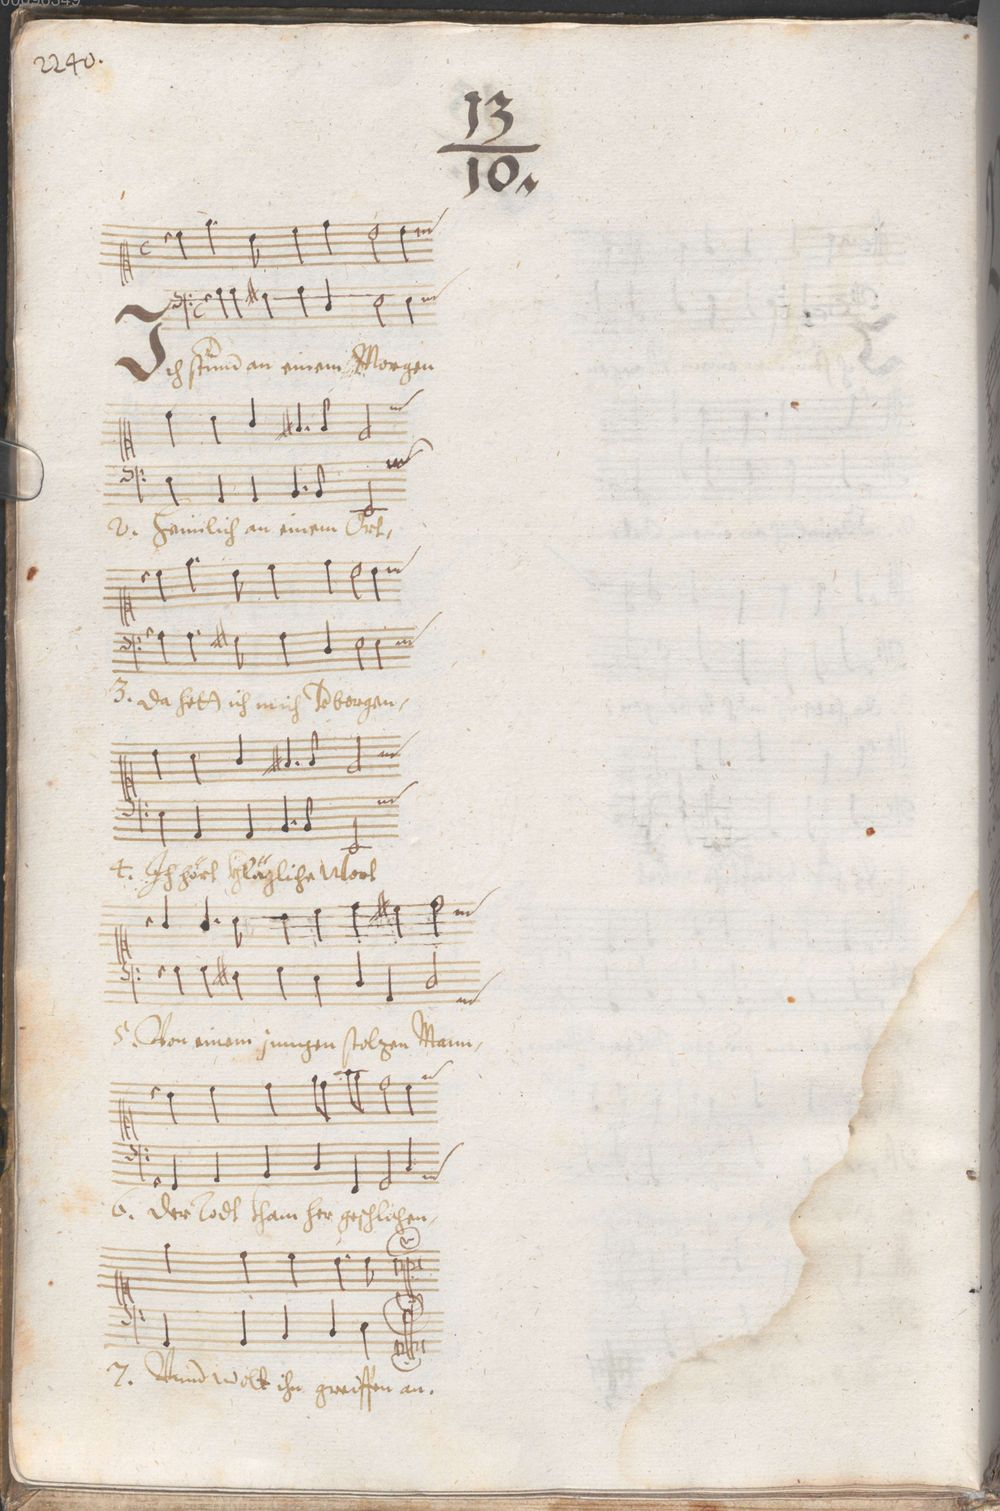 00098349
2240.
13
10.
Ich stund an einem Morgen
2. Heimlich an einem Ort,
3. Da hett ich mich Verborgen,
4. Ich hört Klägliche Wort
5. Von einem jungen stolzen Mann,
6. Der Todt kham her geschlichen,
7. Vnnd wolt ihn greiffen an.